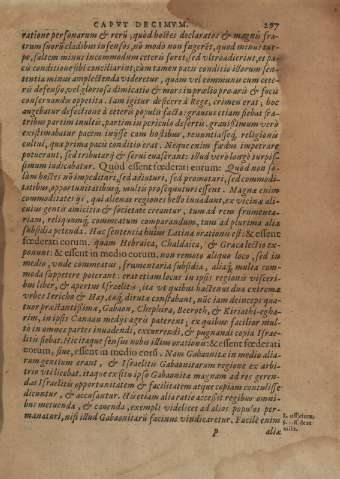 CAPVT DECIMVM. 297
ratione personarum & rerū, quòd hostes declaratos & magnis fra-
trum suorū cladibus infensos, nō modò non fugerēt, quod minus tur-
pe, saltem minus incommodum ceteris foret, sed vltrò adirent, et pa-
cis conditione sibi conciliarint, cùm tamen pacis conditio illorum sen-
tentia minus amplectenda videretur, quàm vel communis cum cete-
ris defensio, vel gloriosa dimicatio & mors in prælio pro aris & focis
conseruandis oppetita. Iam igitur desciscere à Rege, crimen erat, hoc
augebatur defectione à ceteris populis facta: grauius etiam fiebat fra-
tribus partim inuitis, partim in periculo desertis. grauissimum verò
existimabatur pacem iniisse cum hostibus, renuntiasseq́, religionis
cultui, qua prima pacis conditio erat. Neque enim fœdus impetrare
potuerant, sed tributarij & serui euaserant: illud verò longè turpis-
simum iudicabatur. Quòd essent fœderati eorum: Quòd non so-
lùm hostes nō impedirent, sed adiutare, sed promouere, sed commodi-
tatibus, opportunitatibusq́, multis prosequuturi essent. Magna enim
commoditates ijs, qui alienas regiones bello inuadunt, ex vicina ali-
cuius gentis amicitia & societate creantur, tum ad rem frumenta-
riam, reliquumq́, commeatum comparandum, tum ad plurima alia
subsidia petenda. Hac sententia huius Latina orationis est: & essent
fœderati eorum. quam Hebraica, Chaldaica, & Græca lectio ex-
ponunt: & essent in medio eorum, non remoto aliquo loco, sed in
medio, vnde commeatus, frumentaria subsidia, aliaq́, multa com-
modè suppetere poterant: erat etiam locus in ipsis regionis viscerı-
bus liber, & apertus Israelitis, ita vt quibus hactenus duæ extremæ
vrbes Iericho & Hay, easq́, dirutæ constabant, nūc iam deinceps qua-
tuor præstantissimæ, Gabaon, Chephira, Beeroth, & Kiriathi-egha-
rim, in ipsis Canaan medijs agris paterent, ex quibus facilior mul-
tò in omnes partes inuadendi, excurrendi, & pugnandi copia Israe-
litis fiebat. Hic itaque sensus nobis illius orationis: & essent fœderati
eorum, siue, essent in medio eorū. Nam Gabaonitæ in medio alia-
rum gentium erant, & Israelitis Gabaonitarum regione ex arbi-
trio vti licebat. itaque ex situ ipso Gabaonitæ magnam ad res geren-
das Israelitis opportunitatem & facilitatem atque copiam contulisse
dicuntur, & accusantur. His etiam alia ratio accessit regibus omni-
bus metuenda, & cauenda, exempli videlicet ad alios populos per-
manaturi, nisi illud Gabaonitarū facinus vindicaretur. Facilè enim
P aliæ